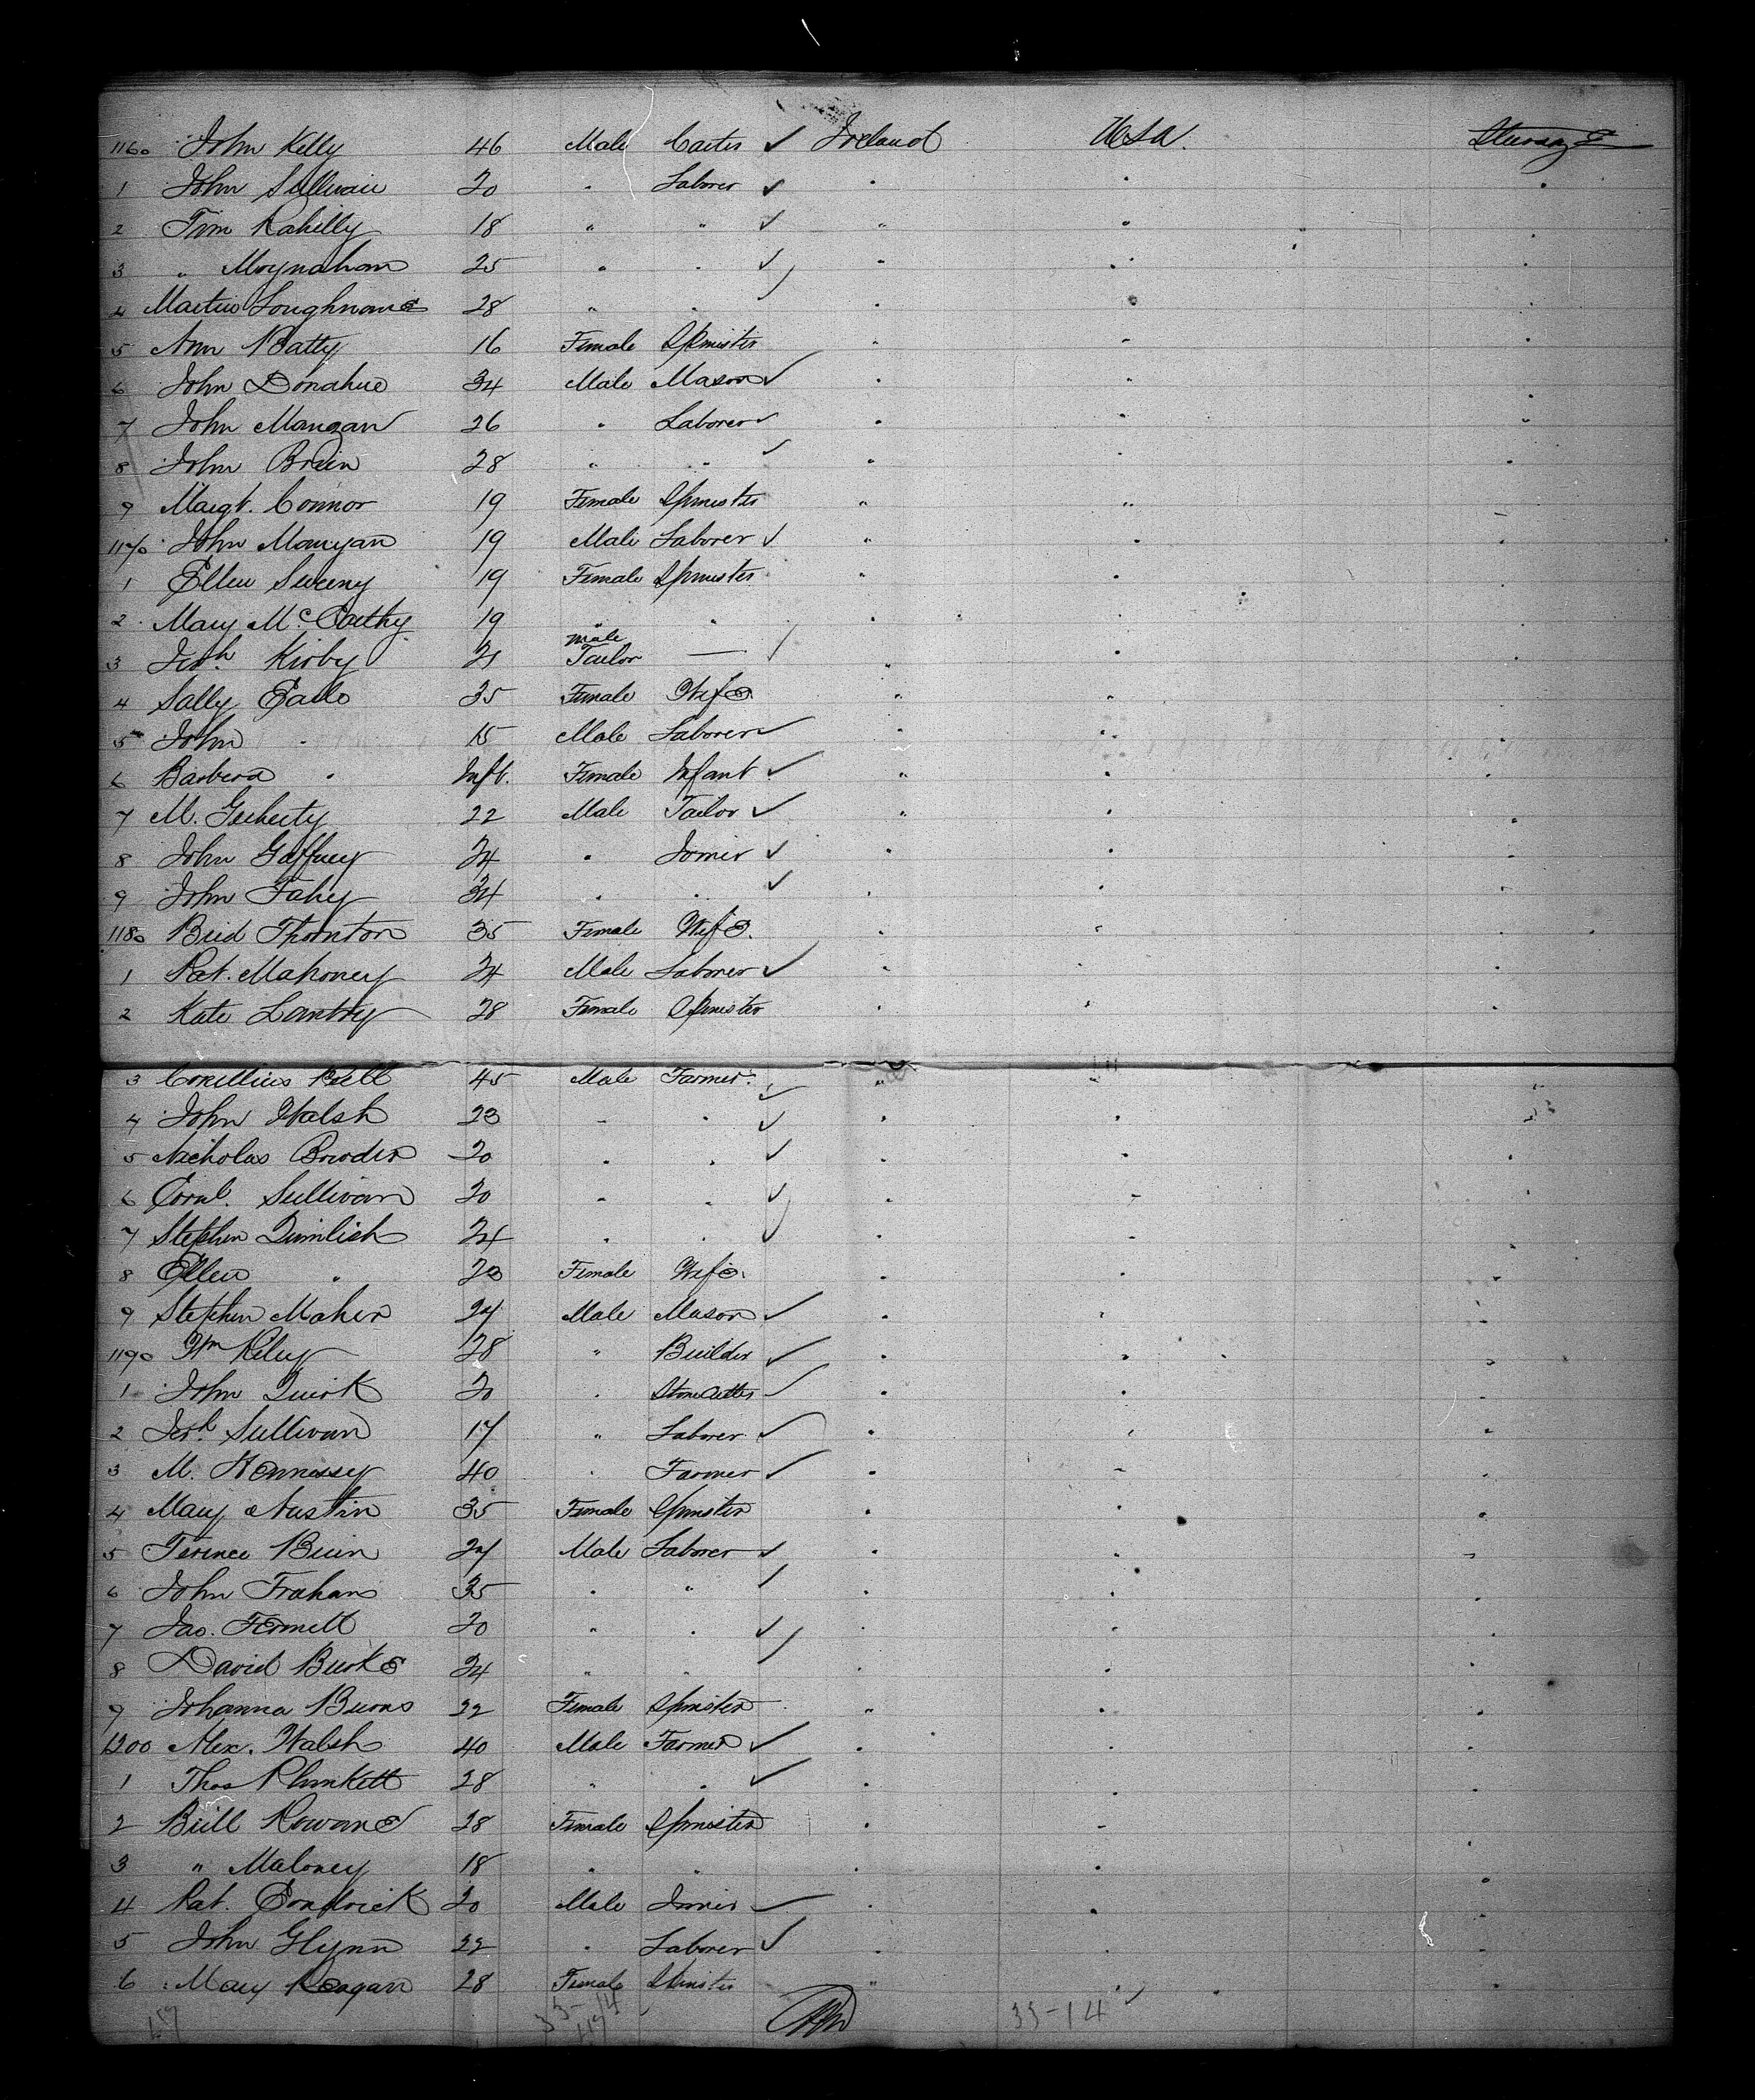 1160 John Kelly 46 Male Carter ✓ Ireland USA. Steerage
1 John Sullivan 20 " Laborer ✓ " " "
2 Tim Rahilly 18 " " ✓ " " "
3 " Moynahan 25 " " ✓ " " "
4 Martin Loughnane 28 " " " " "
5 Ann Batty 16 Female Spinster " " "
6 John Donahue 34 Male Mason ✓ " " "
7 John Mangan 26 " Laborer ✓ " " "
8 John Brien 28 " " ✓ " " "
9 Margt. Connor 19 Female Spinster " " "
1170 John Monyan 19 Male Laborer ✓ " " "
1 Ellen Sweeny 19 Female Spinster " " "
2 Mary McCarthy 19 " " " "
male
3 Jerh Kirby 21 Tailor — " "
4 Sally Earle 35 Female Wife " " "
5 John " 15 Male Laborer ✓ " " "
6 Barbera " Inft. Female Infant ✓ " " "
7 M. Geherty 22 Male Tailor ✓ " " "
8 John Gaffney 24 " Joiner ✓ " " "
9 John Fahey 34 " " ✓ " " "
1180 Brid Thornton 35 Female Wife. " " "
1 Pat. Mahoney 24 Male Laborer ✓ " " "
2 Kate Lantry 28 Female Spinster " " "
3 Cornellius Kell 45 Male Farmer. ✓ " " "
4 John Walsh 23 " " ✓ " " "
5 Nicholas Browder 20 " " ✓ " " "
6 Cornl. Sullivan 20 " " ✓ " " "
7 Stephen Quinlish 24 " " ✓ " " "
8 Ellen " 23 Female Wife. " " "
9 Stephen Maher 27 Male Mason ✓ " " "
1190 Wm Riley 28 " Builder ✓ " " "
1 John Quirk 20 " Stone Cutter ✓ " " "
2 Jerh. Sullivan 17 " Laborer ✓ " " "
3 M. Hennessey 40 " Farmer ✓ " " "
4 Mary Austin 35 Female Spinster " " "
5 Terence Brien 27 Male Laborer ✓ " " "
6 John Trahan 35 " " ✓ " " "
7 Jas. Fennell 20 " " ✓ " " "
8 David Burke 24 " " " " "
9 Johanna Burns 22 Female Spinster " " "
1200 Alex. Walsh 40 Male Farmer ✓ " " "
1 Thos Plunkett 28 " " ✓ " " "
2 Bill Rowane 28 Female Spinster " " "
3 " Maloney 18 " " " " "
4 Pat. Condrick 20 Male Joiner ✓ " " "
5 John Glynn 22 " Laborer ✓ " " "
6 Mary Reagan 28 Female Spinster " " "
33-14 33-14